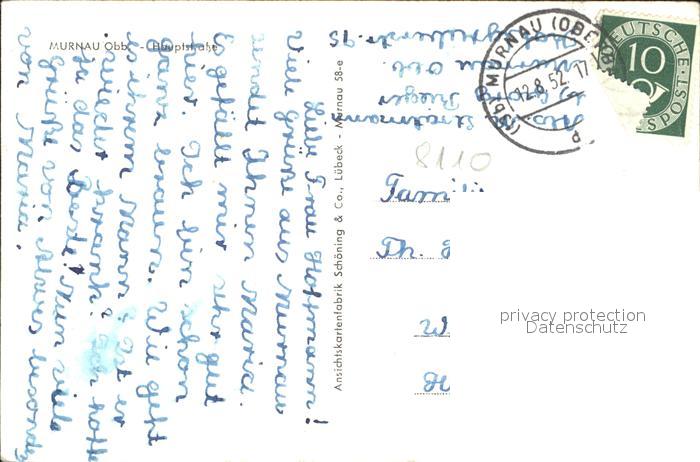 MURNAU Obb. - Hauptstraße
Liebe Frau Hoffmann!
Viele Grüße aus Murnau
sendet Ihnen Maria.
Es gefällt mir sehr gut
hier. Ich bin schon
ganz braun. Wie geht
es ihrem Mann? Ist er
wieder krank? Ich hoffe
ja das Beste! Nun viele
Grüße von
von Maria.
Ansichtskartenfabrik Schöning & Co., Lübeck - Murnau 58-e
Murnau Obb.
MURNAU (OBERBAY)
12.8.52.-17
DEUTSCHE POST
10
8110
Fami
Th.
W
H
privacy protection
Datenschutz